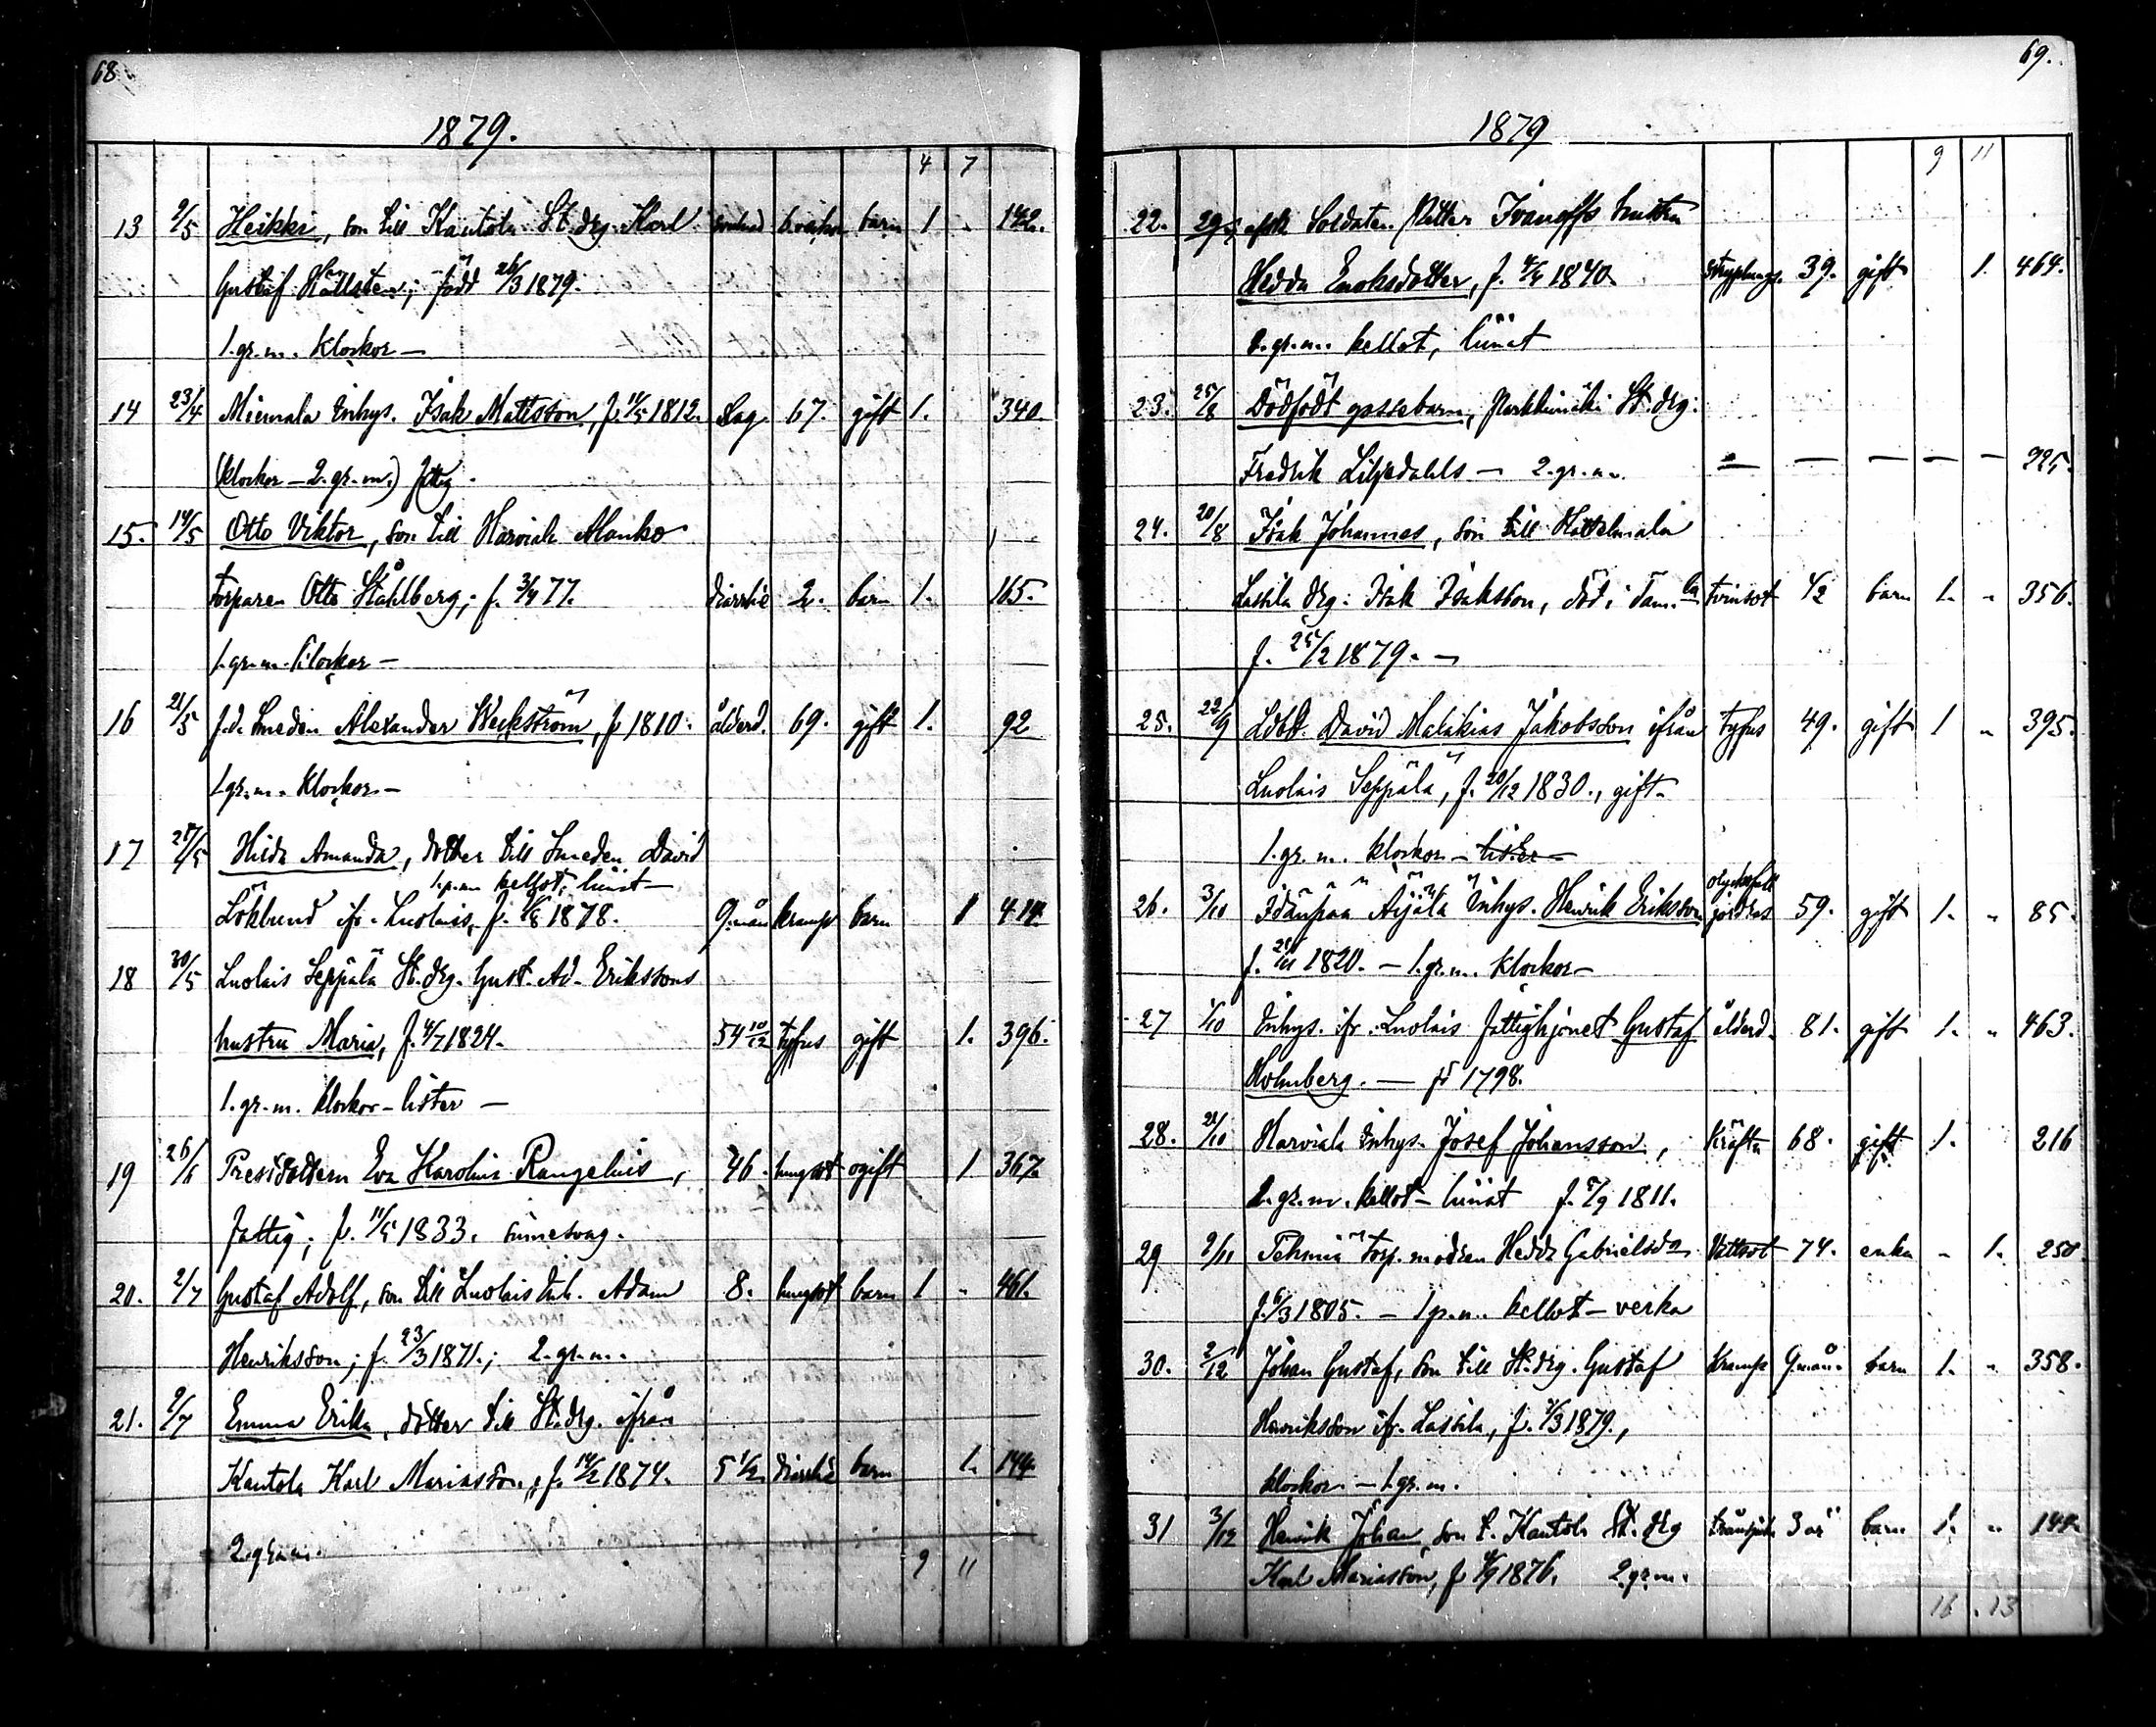 68
1879.
4 7
13 9/5 Heikki, son till Kantola St. drg. Karl 6 veckor barn 1 - 142.
Gustaf Hällsten; född 26/3 1879.
1. gr. m. klockor —
14 23/4 Miemala Inhys. Isak Mattsson, f. 11/5 1812. Slag 67. gift 1. 340
(klockor — 2. gr. m.) fttig.
15. 14/5 Otto Viktor, son till Harviala Alanko
torparen Otto Ståhlberg; f. 3/4 77. diarrhé 2. barn 1. 165.
1. gr. m. klockor —
16 21/5 f.d. Smeden Alexander Weckström, f. 1810. ålderd. 69. gift 1. 92
1 gr. m. klockor —
17 27/5 Hilda Amanda, dotter till Smeden David
1. p. m. kellot, liinat —
Löklund ifr. Luolais, f. 1878. 9. mån kramp barn 1 414.
18 30/5 Luolais Seppälä St. drg. Gust. Ad. Erikssons
hustru Maria, f. 4/7 1824. 54 10/12 tyfus gift 1. 396.
1. gr. m. klockor — lister —
19 26/6 Prestdottern Eva Karolina Rangelius, 46. lungsot ogift 1 367.
fattig; f. 11/5 1833. sinnesvag.
20. 2/7 Gustaf Adolf, son till Luolais Inh. Adam 8. lungsot barn 1 - 461.
Henriksson; f. 23/3 1871.; 2. gr. m.
21. 9/7 Emma Erika, dotter till St. drg. ifrån
Kantola Karl Mariasson, f. 14/2 1874. 5 1/2 diarrhé barn 1. 144.
2. gr. m.
9 11
69.
1879
9 11
22. 29 afsk. Soldaten Petter Ivanoffs hustru
Hedda Enoksdotter, f. 1840. 39. gift 1. 464.
2. gr. m. kellot, liinat
23. 25/8 Dödfödt gossebarn, Parkkimäki St. drg.
Fredrik Liljedahls — 2. gr. m. — — — — — 225.
24. 20/8 Isak Johannes, son till Hattelmala
Lassila drg. Isak Isaksson, död i tvinsot 1/2 barn 1. - 356.
f. 25/2 1879. —
25. 22/9 David Malakias Jakobsson ifrån tyfus 49. gift 1 - 395.
Luolais Seppälä, f. 20/12 1830., gift.
1. gr. m. klockor —
26. 3/10 Idänpää Äijälä Inhys. Henrik Eriksson olycksfall 59. gift 1. - 85.
f. 1820. — 1. gr. m. klockor —
27 1/10 Inhys. ifr. Luolais fattighjonet Gustaf ålderd. 81. gift 1. - 463.
Holmberg. — fd 1798.
28. 21/10 Harviala Inhys. Josef Johansson, Kräfta 68. gift 1. 216
2. gr. m. kellot — liinat f. 5/9 1811.
29 9/11 torp. modren Hedda Gabrielsd. Vattsot 74. enka - 1. 250
f. 6/3 1805. — 1 p. m. kellot — verka
30. 2/12 Johan Gustaf, son till St. drg. Gustaf Kramp 9. mån. barn 1. - 358.
Henriksson ifr. Lassila, f. 1/3 1879.,
klockor. — 1. gr. m.
31 3/12 Henrik Johan, son t. Kantola St. drg 3 år barn 1. - 144.
Karl Mariasson, f. 1876. 2. gr. m.
16 . 13